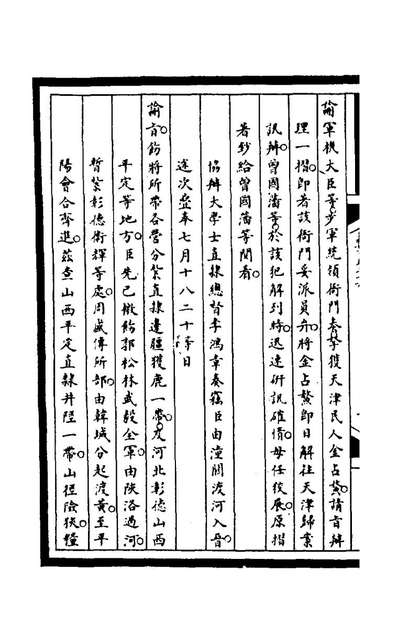 諭軍機大臣等步軍統領衙門奏拏獲天津民人金占鰲請旨辦
理一摺即著該衙門妥派員弁將金占鰲即日解往天津歸案
訊辦曾國藩等於該犯解到時迅速研訊確情毋任狡展原摺
著鈔給曾國藩等閱看
協辦大學士直隸總督李鴻章奏竊臣由潼關渡河入晉
迭次奉七月十八二十等日
諭旨飭將所帶各營分紮直隸邊疆獲鹿一帶及河北彰德山西
平定等地方臣先已檄飭郭松林武毅全軍由陝洛過河
暫紮彰德衛輝等處周盛傳所部由韓城分起渡黃至平
陽會合齊進茲查山西平定直隸井陘一帶山徑險狹糧